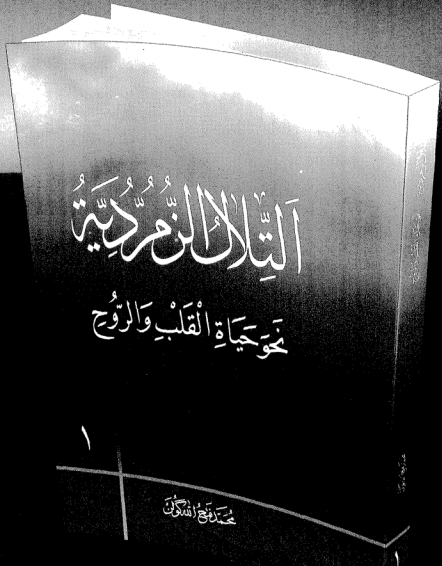 اَلتِّلَالُ الزُّمُرُّدِيَّةُ
نَحْوَ حَيَاةِ الْقَلْبِ وَالرُّوحِ
١
مُحَمَّد فَتْحُ اللّٰه كُولَن
١